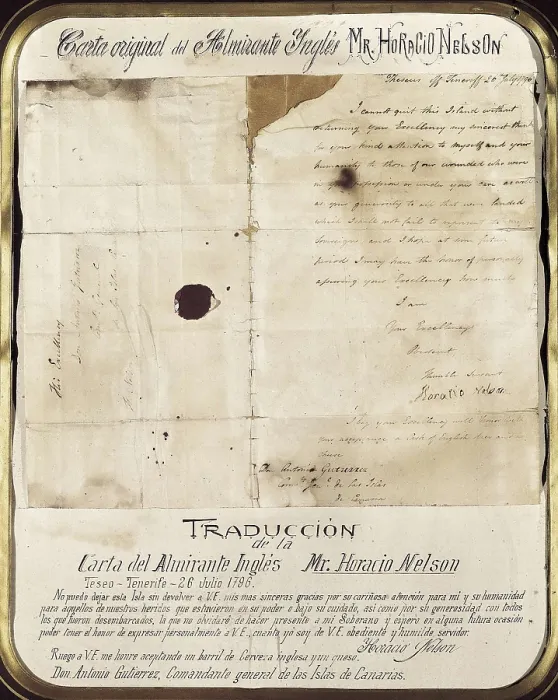 Carta original del Almirante Inglés Mr. Horacio Nelson
Theseus off Teneriff 26 July 1796
I cannot quit this Island without
returning your Excellency my sincerest thanks
for your kind attention to myself and your
humanity to those of our wounded who were
in your possession or under your care as well
as your generosity to all that were landed
which I shall not fail to represent to my
Sovereign and I hope at some future
period I may have the honor of personally
assuring your Excellency how much
I am
Your Excellency
Obedient
Humble Servant
Horatio Nelson
I beg your Excellency will honor
a Cask of English beer and a
cheese
Dn Antonio Gutierrez
de las Islas
de Canaria
His Excellency
Don Antonio Gutierrez
TRADUCCIÓN
de la
Carta del Almirante Inglés Mr. Horacio Nelson
Teseo - Tenerife - 26 Julio 1796.
No puedo dejar esta Isla sin devolver a V.E. mis mas sinceras gracias por su cariñosa atención para mi y su humanidad
para aquellos de nuestros heridos que estuvieron en su poder o bajo su cuidado, así como por su generosidad con todos
los que fueron desembarcados, la que no olvidaré de hacer presente a mi Soberano y espero en alguna futura ocasión
poder tener el honor de expresar personalmente a V.E., cuanto yo soy de V.E. obediente y humilde servidor.
Horacio Nelson
Ruego a V.E. me honre aceptando un barril de Cerveza inglesa y un queso.
Don Antonio Gutierrez, Comandante general de las Islas de Canarias.